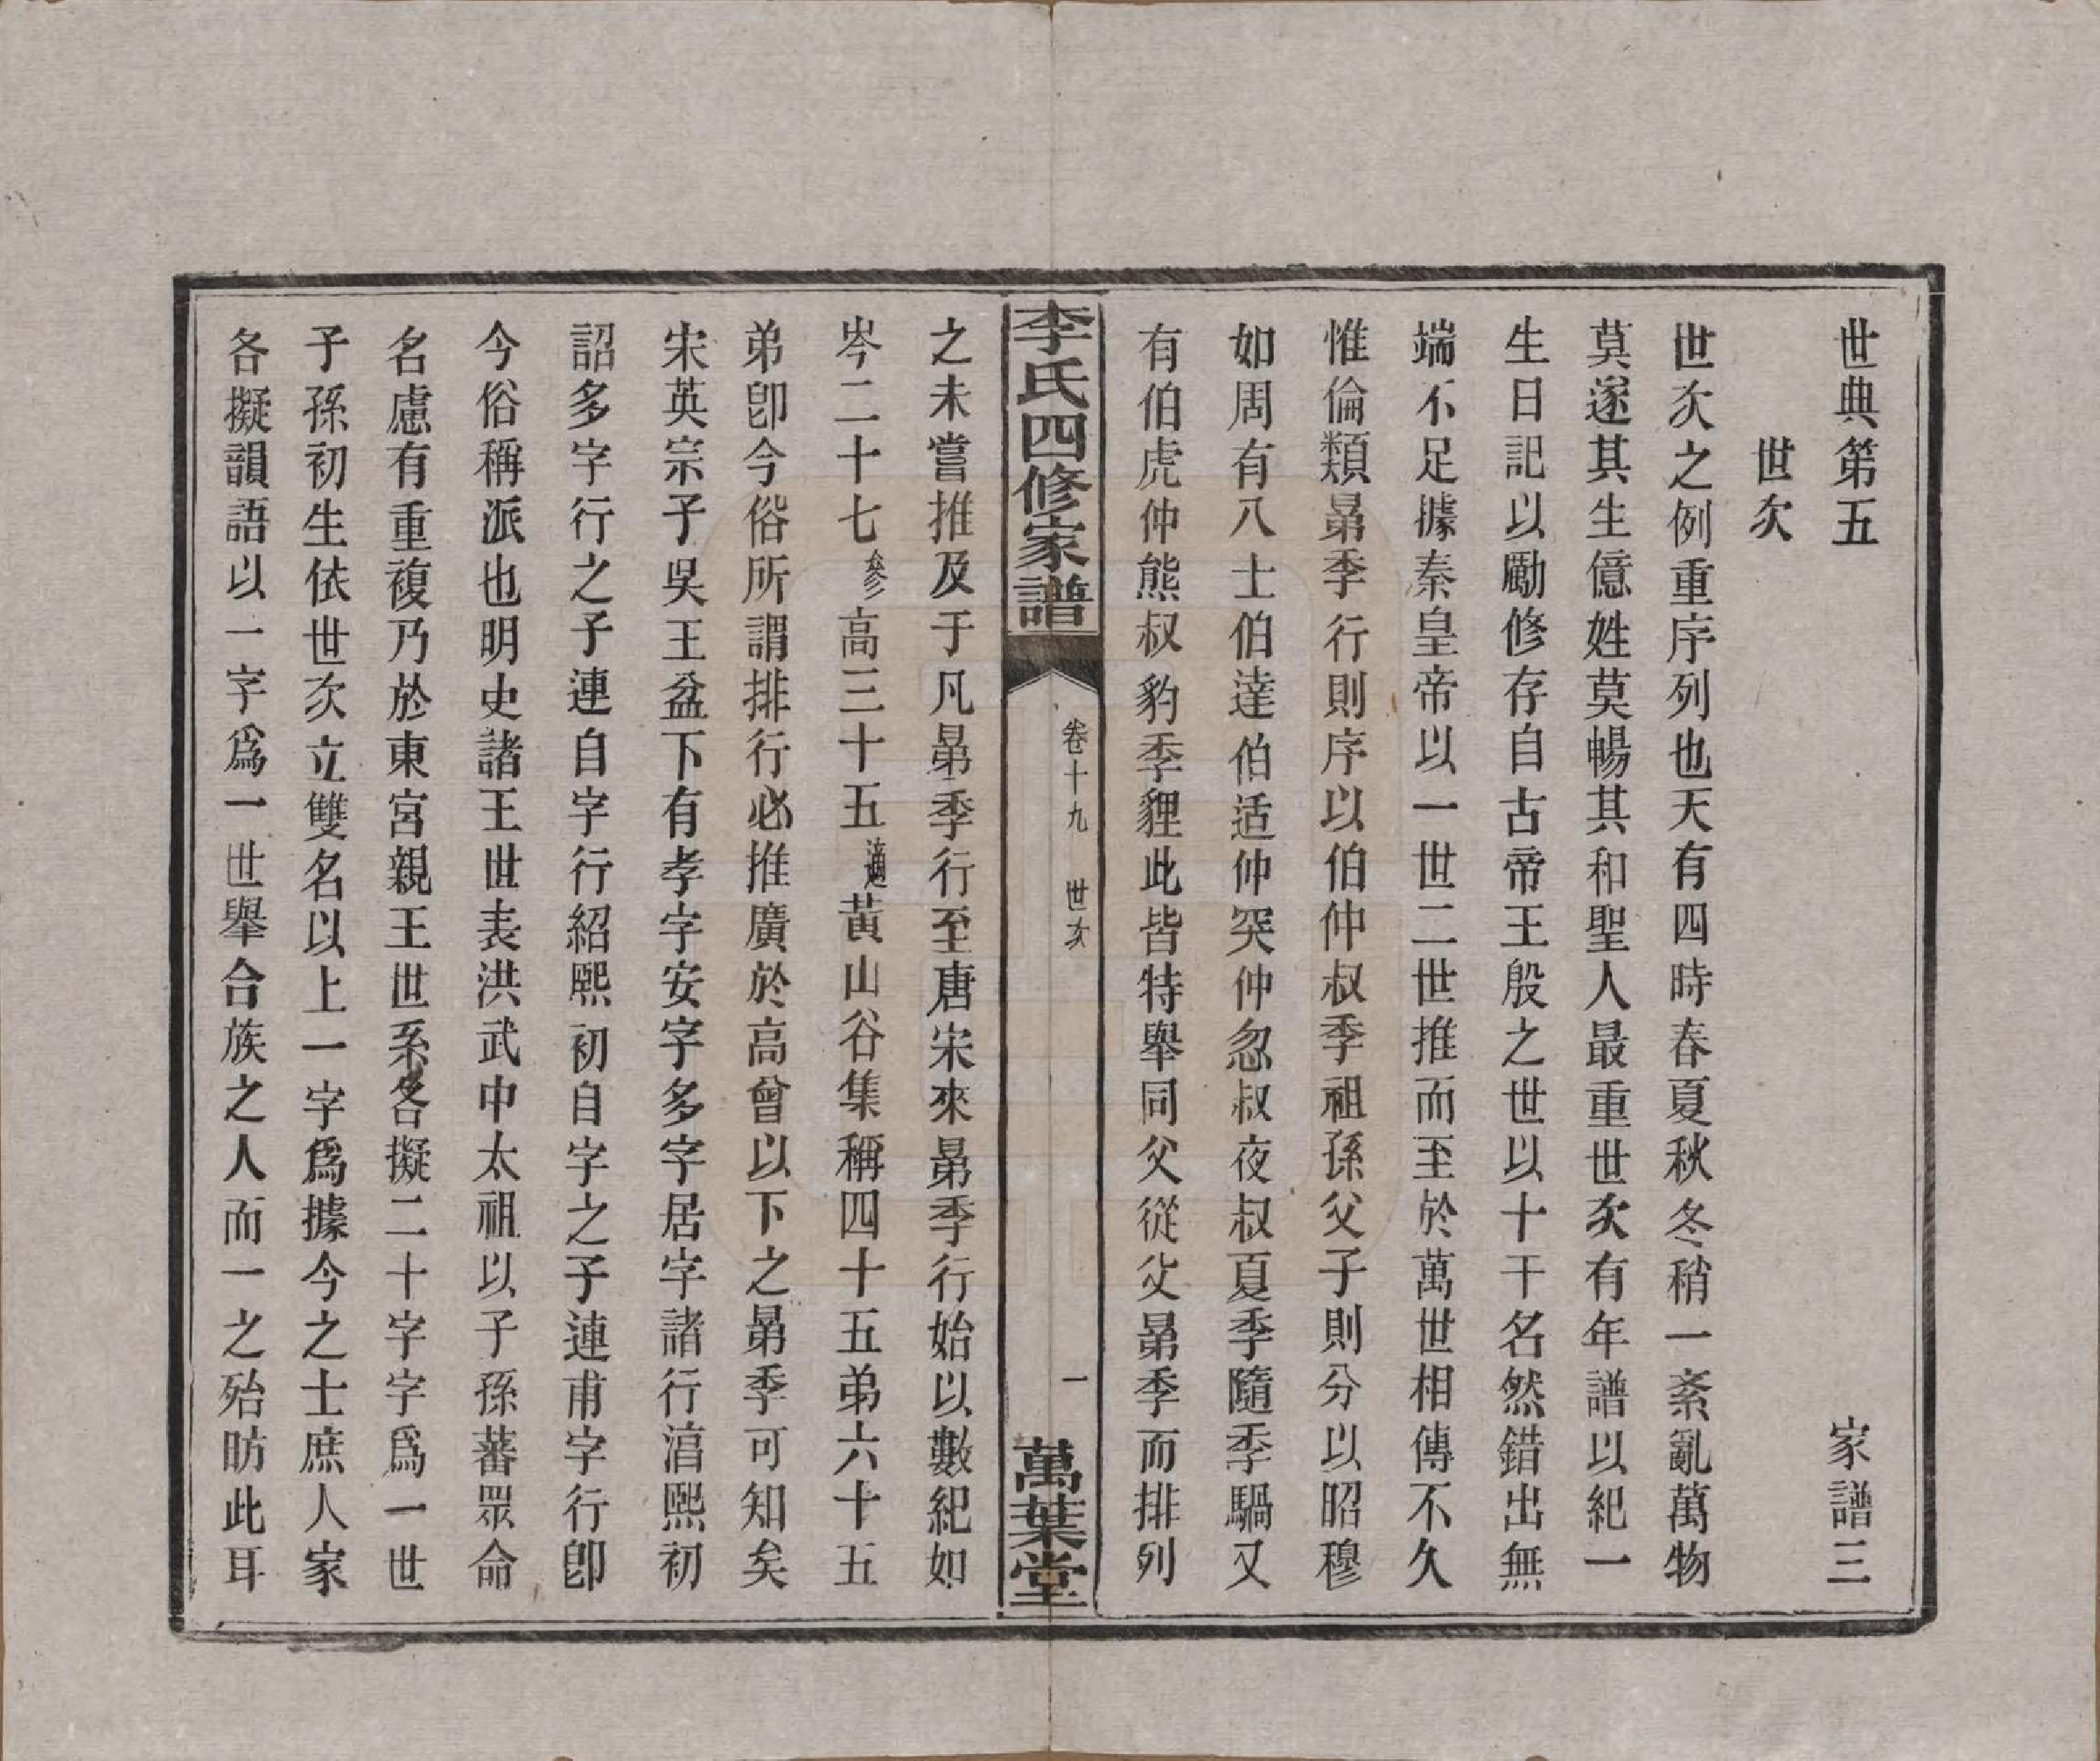 世典第五　家譜三
世次
世次之例重序列也天有四時春夏秋冬稍一紊亂萬物
莫遂其生億姓莫暢其和聖人最重世次有年譜以紀一
生日記以勵修存自古帝王殷之世以十干名然錯出無
端不足據秦皇帝以一世二世推而至於萬世相傳不久
惟倫類晜季行則序以伯仲叔季祖孫父子則分以昭穆
如周有八士伯達伯适仲突仲忽叔夜叔夏季隨季騧又
有伯虎仲熊叔豹季貍此皆特舉同父從父晜季而排列
李氏四修家譜　卷十九　世次　一　萬葉堂
之未嘗推及于凡晜季行至唐宋來晜季行始以數紀如
岑二十七參高三十五適黃山谷集稱四十五弟六十五
弟卽今俗所謂排行必推廣於高曾以下之晜季可知矣
宋英宗子吳王益下有孝字安字多字居字諸行淳熙初
詔多字行之子連自字行紹熙初自字之子連甫字行卽
今俗稱派也明史諸王世表洪武中太祖以子孫蕃眾命
名慮有重複乃於東宮親王世系各擬二十字字爲一世
子孫初生依世次立雙名以上一字爲據今之士庶人家
各擬韻語以一字爲一世舉合族之人而一之殆昉此耳